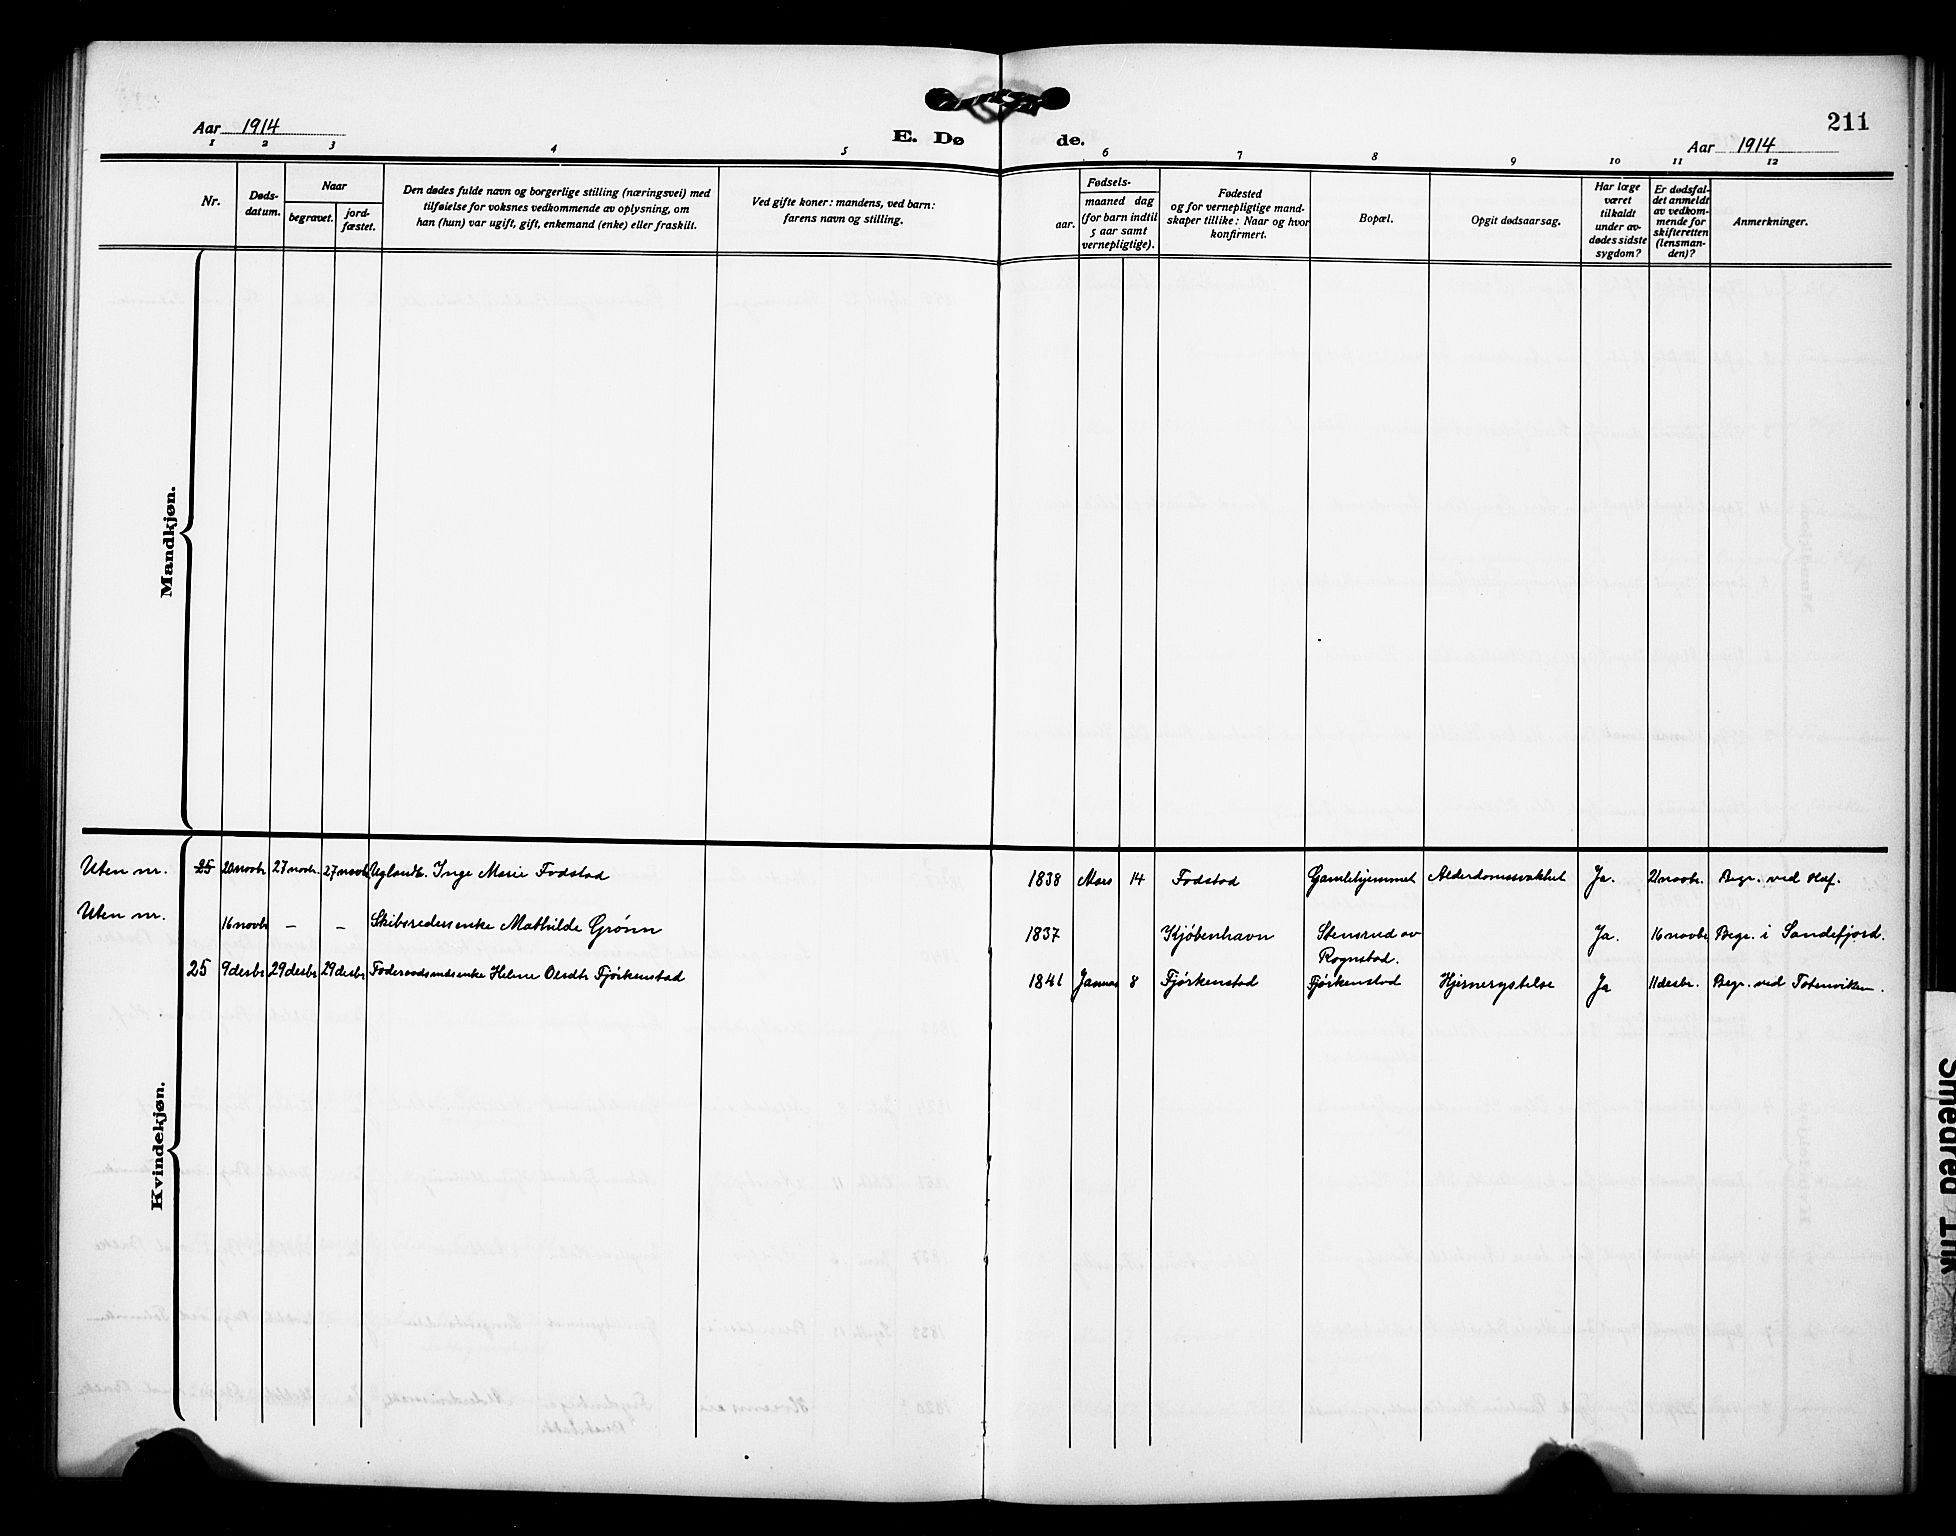 211
Aar 1914
E. Dø
de.
Aar 1914
1 2 3 4 5 6 7 8 9 10 11 12
Nr.
Døds-
datum.
Naar
begravet.
jord-
fæstet.
Den dødes fulde navn og borgerlige stilling (næringsvei) med
tilføielse for voksnes vedkommende av oplysning, om
han (hun) var ugift, gift, enkemand (enke) eller fraskilt.
Ved gifte koner: mandens, ved barn:
farens navn og stilling.
Fødsels-
aar.
maaned dag
(for barn indtil
5 aar samt
vernepligtige).
Fødested
og for vernepligtige mand-
skaper tillike: Naar og hvor
konfirmert.
Bopæl.
Opgit dødsaarsag.
Har læge
været
tilkaldt
under av-
dødes sidste
sygdom?
Er dødsfal-
det anmeldt
av vedkom-
mende for
skifteretten
(lensman-
den)?
Anmerkninger.
Mandkjøn.
Kvindekjøn.
Uten nr. 25 20 novbr 27 novbr. 27 novbr Inge Marie Fodstad 1838 Mars 14 Fodstad Gamlehjemmet Alderdomssvakhet Ja. 21 novbr. Begr. ved Hof.
Uten nr. 16 novbr – – Skibsredersenke Mathilde Grønn 1837 Kjøbenhavn Stensrud av Rognstad. Ja. 16 novbr Begr. i Sandefjord.
25 9 desbr 29 desbr 29 desbr Føderaadsmandsenke Helene Olsdtr Fjørkenstad 1841 Januar 8 Fjørkenstad Fjørkenstad Hjernerystelse Ja 11 desbr. Begr. ved Totenviken.
Smedrød Trik